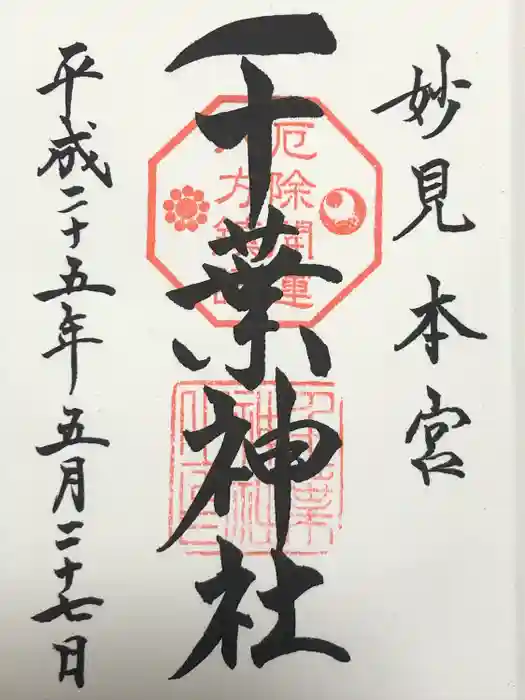 妙見本宮
千葉神社
厄除開運
平成二十五年五月二十七日